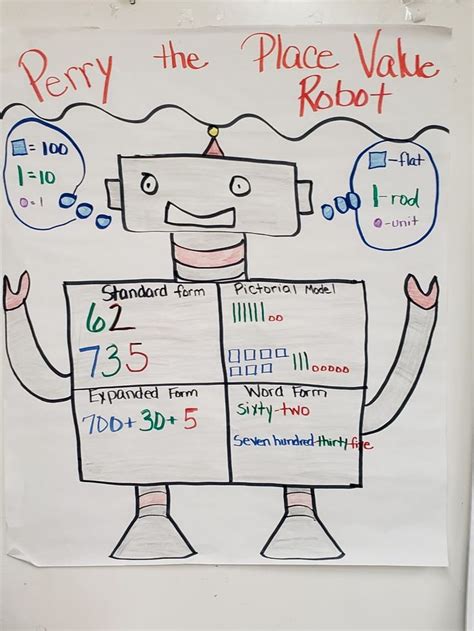 Perry the Place Value
Robot
= 100
= 10
= 1
-flat
-rod
-unit
Standard form
62
735
Pictorial Model
Expanded Form
700+30+5
Word Form
sixty-two
seven hundred thirty-five